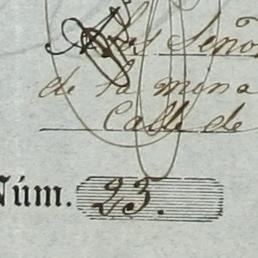 Seño
de la mina
Calle de
Núm. 23.